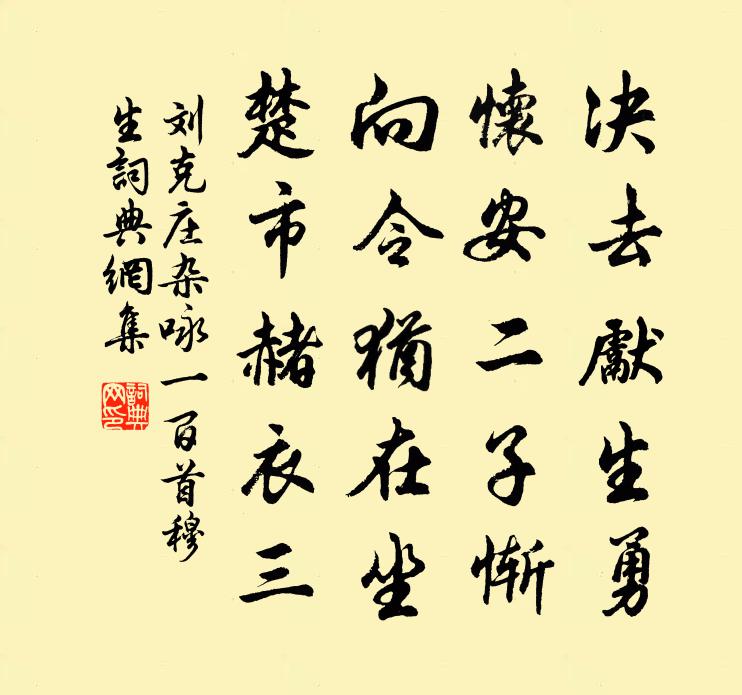 决去獻生勇
懷安二子惭
向令猶在坐
楚市赭衣三
刘克庄杂咏一百首穆
生詞典網集
詞典网印